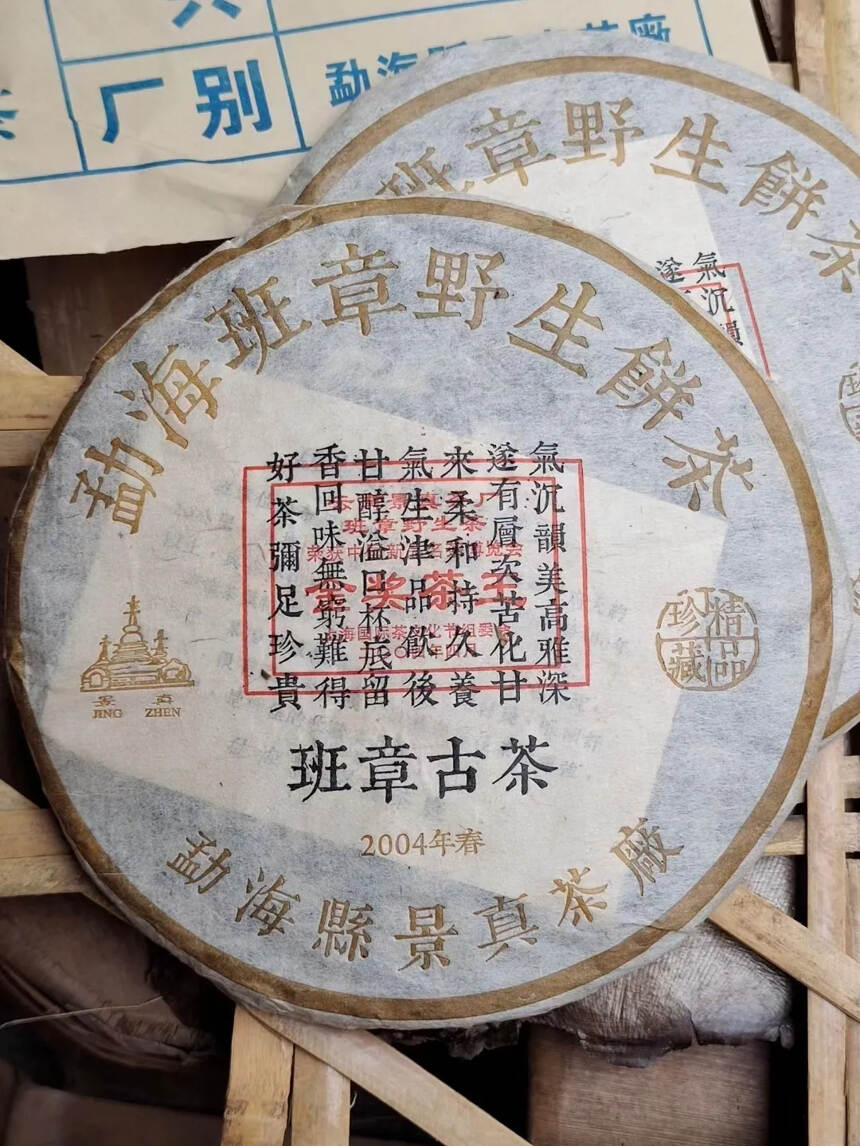 厂别
勐海
廠
班章野生餅茶
氣沉韻
遂
勐海班章野生餅茶
氣沉韻美高雅深
遂有層次苦化甘
來柔和持久養
氣生津品飲後
甘醇溢口杯底留
香回味無窮難得
好茶彌足珍貴
班章野生茶
金奖茶王
景真
JING ZHEN
精品
珍藏
班章古茶
2004年春
勐海縣景真茶廠